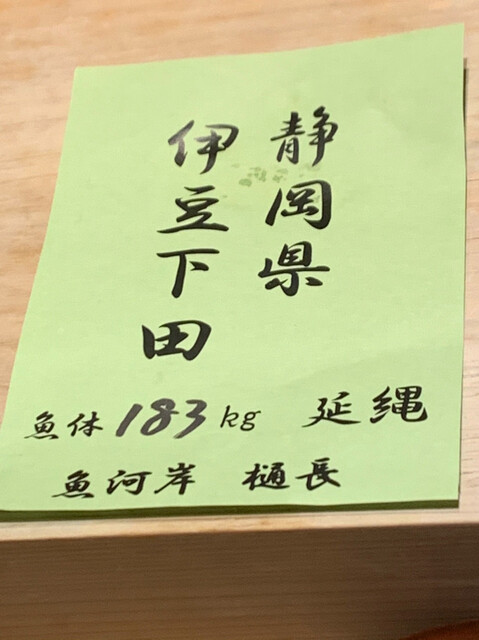 静岡県
伊豆下田
魚体 183 kg 延縄
魚河岸 樋長